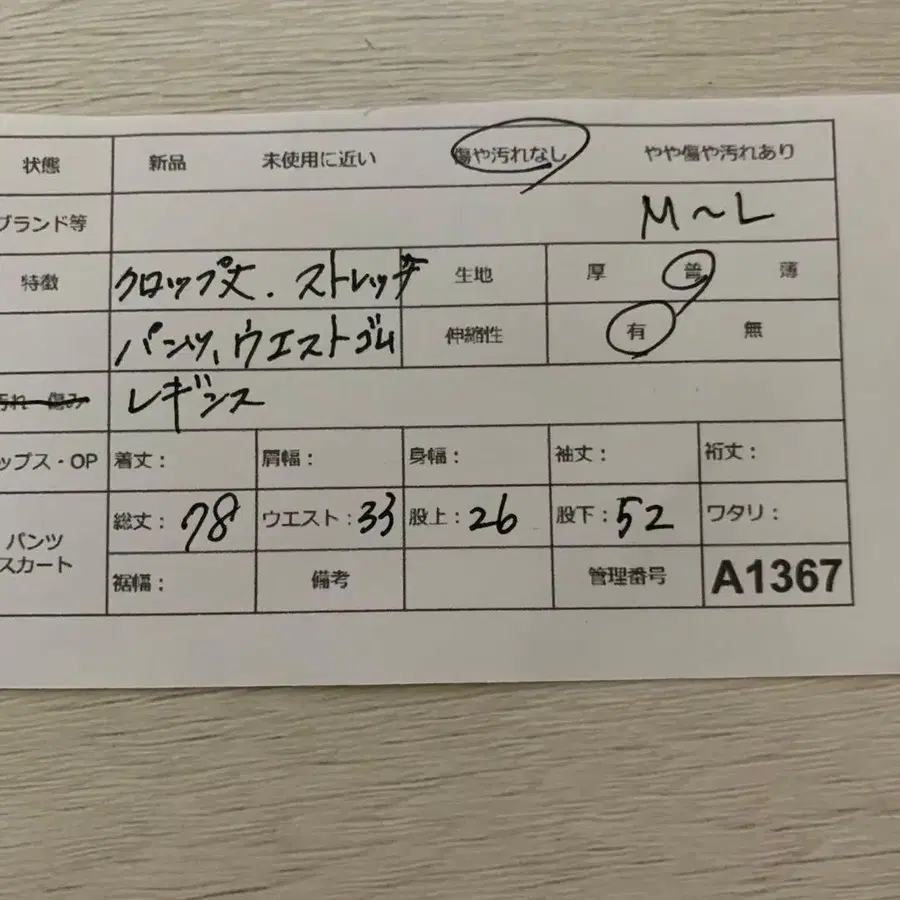 状態 新品 未使用に近い 傷や汚れなし やや傷や汚れあり
ブランド等 M～L
特徴 クロップ丈. ストレッチ 生地 厚 普 薄
パンツ、ウエストゴム 伸縮性 有 無
汚れ・傷み レギンス
ップス・OP 着丈： 肩幅： 身幅： 袖丈： 裄丈：
パンツ
スカート
総丈：78 ウエスト：33 股上：26 股下：52 ワタリ：
裾幅： 備考 管理番号 A1367